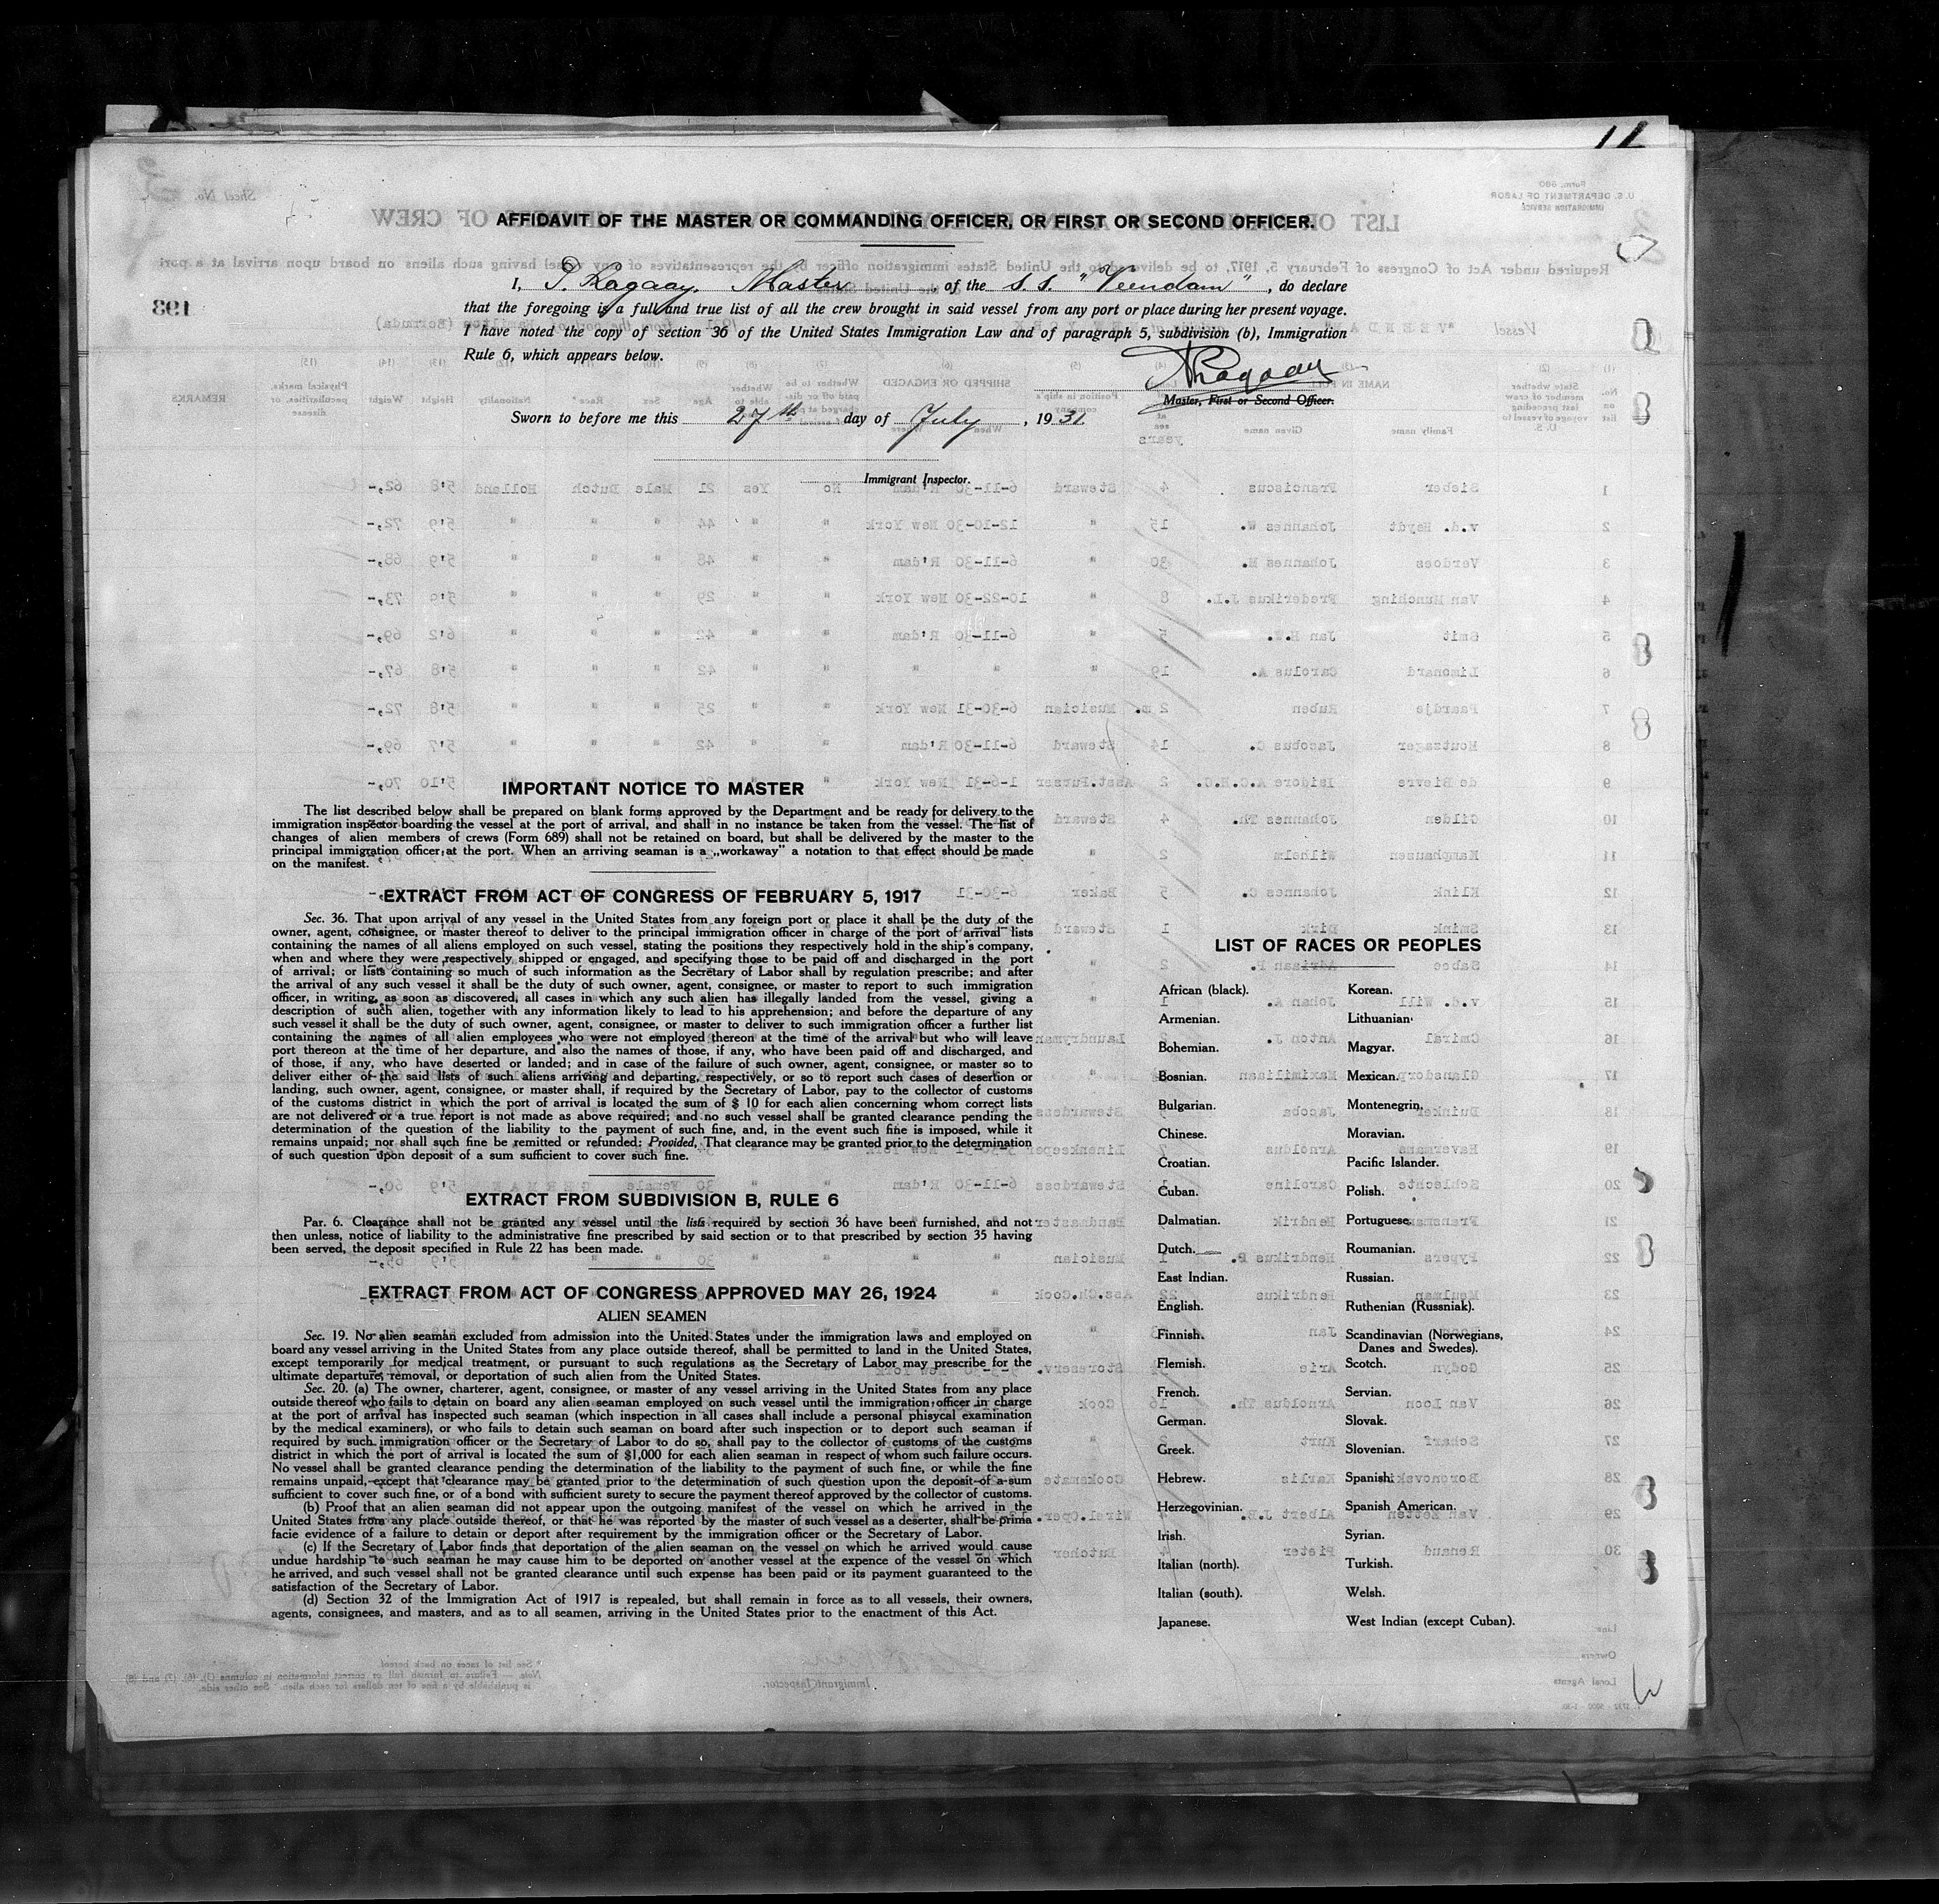 11
AFFIDAVIT OF THE MASTER OR COMMANDING OFFICER, OR FIRST OR SECOND OFFICER.
I, P. Ragaay. Master of the S.S. "Veendam", do declare
that the foregoing is a full and true list of all the crew brought in said vessel from any port or place during her present voyage.
I have noted the copy of section 36 of the United States Immigration Law and of paragraph 5, subdivision (b), Immigration
Rule 6, which appears below.
Master, First or Second Officer.
Sworn to before me this 27th day of July, 1931
Immigrant Inspector.
IMPORTANT NOTICE TO MASTER
The list described below shall be prepared on blank forms approved by the Department and be ready for delivery to the
immigration inspector boarding the vessel at the port of arrival, and shall in no instance be taken from the vessel. The list of
changes of alien members of crews (Form 689) shall not be retained on board, but shall be delivered by the master to the
principal immigration officer at the port. When an arriving seaman is a „workaway" a notation to that effect should be made
on the manifest.
EXTRACT FROM ACT OF CONGRESS OF FEBRUARY 5, 1917
Sec. 36. That upon arrival of any vessel in the United States from any foreign port or place it shall be the duty of the
owner, agent, consignee, or master thereof to deliver to the principal immigration officer in charge of the port of arrival lists
containing the names of all aliens employed on such vessel, stating the positions they respectively hold in the ship's company,
when and where they were respectively shipped or engaged, and specifying those to be paid off and discharged in the port
of arrival; or lists containing so much of such information as the Secretary of Labor shall by regulation prescribe; and after
the arrival of any such vessel it shall be the duty of such owner, agent, consignee, or master to report to such immigration
officer, in writing, as soon as discovered, all cases in which any such alien has illegally landed from the vessel, giving a
description of such alien, together with any information likely to lead to his apprehension; and before the departure of any
such vessel it shall be the duty of such owner, agent, consignee, or master to deliver to such immigration officer a further list
containing the names of all alien employees who were not employed thereon at the time of the arrival but who will leave
port thereon at the time of her departure, and also the names of those, if any, who have been paid off and discharged, and
of those, if any, who have deserted or landed; and in case of the failure of such owner, agent, consignee, or master so to
deliver either of the said lists of such aliens arriving and departing, respectively, or so to report such cases of desertion or
landing, such owner, agent, consignee, or master shall, if required by the Secretary of Labor, pay to the collector of customs
of the customs district in which the port of arrival is located the sum of $ 10 for each alien concerning whom correct lists
are not delivered or a true report is not made as above required; and no such vessel shall be granted clearance pending the
determination of the question of the liability to the payment of such fine, and, in the event such fine is imposed, while it
remains unpaid; nor shall such fine be remitted or refunded: Provided, That clearance may be granted prior to the determination
of such question upon deposit of a sum sufficient to cover such fine.
EXTRACT FROM SUBDIVISION B, RULE 6
Par. 6. Clearance shall not be granted any vessel until the lists required by section 36 have been furnished, and not
then unless, notice of liability to the administrative fine prescribed by said section or to that prescribed by section 35 having
been served, the deposit specified in Rule 22 has been made.
EXTRACT FROM ACT OF CONGRESS APPROVED MAY 26, 1924
ALIEN SEAMEN
Sec. 19. No alien seaman excluded from admission into the United States under the immigration laws and employed on
board any vessel arriving in the United States from any place outside thereof, shall be permitted to land in the United States,
except temporarily for medical treatment, or pursuant to such regulations as the Secretary of Labor may prescribe for the
ultimate departure, removal, or deportation of such alien from the United States.
Sec. 20. (a) The owner, charterer, agent, consignee, or master of any vessel arriving in the United States from any place
outside thereof who fails to detain on board any alien seaman employed on such vessel until the immigration officer in charge
at the port of arrival has inspected such seaman (which inspection in all cases shall include a personal phisycal examination
by the medical examiners), or who fails to detain such seaman on board after such inspection or to deport such seaman if
required by such immigration officer or the Secretary of Labor to do so, shall pay to the collector of customs of the customs
district in which the port of arrival is located the sum of $1,000 for each alien seaman in respect of whom such failure occurs.
No vessel shall be granted clearance pending the determination of the liability to the payment of such fine, or while the fine
remains unpaid, except that clearance may be granted prior to the determination of such question upon the deposit of a sum
sufficient to cover such fine, or of a bond with sufficient surety to secure the payment thereof approved by the collector of customs.
(b) Proof that an alien seaman did not appear upon the outgoing manifest of the vessel on which he arrived in the
United States from any place outside thereof, or that he was reported by the master of such vessel as a deserter, shall be prima
facie evidence of a failure to detain or deport after requirement by the immigration officer or the Secretary of Labor.
(c) If the Secretary of Labor finds that deportation of the alien seaman on the vessel on which he arrived would cause
undue hardship to such seaman he may cause him to be deported on another vessel at the expence of the vessel on which
he arrived, and such vessel shall not be granted clearance until such expense has been paid or its payment guaranteed to the
satisfaction of the Secretary of Labor.
(d) Section 32 of the Immigration Act of 1917 is repealed, but shall remain in force as to all vessels, their owners,
agents, consignees, and masters, and as to all seamen, arriving in the United States prior to the enactment of this Act.
LIST OF RACES OR PEOPLES
African (black).
Armenian.
Bohemian.
Bosnian.
Bulgarian.
Chinese.
Croatian.
Cuban.
Dalmatian.
Dutch.
East Indian.
English.
Finnish.
Flemish.
French.
German.
Greek.
Hebrew.
Herzegovinian.
Irish.
Italian (north).
Italian (south).
Japanese.
Korean.
Lithuanian.
Magyar.
Mexican.
Montenegrin.
Moravian.
Pacific Islander.
Polish.
Portuguese.
Roumanian.
Russian.
Ruthenian (Russniak).
Scandinavian (Norwegians,
Danes and Swedes).
Scotch.
Servian.
Slovak.
Slovenian.
Spanish.
Spanish American.
Syrian.
Turkish.
Welsh.
West Indian (except Cuban).